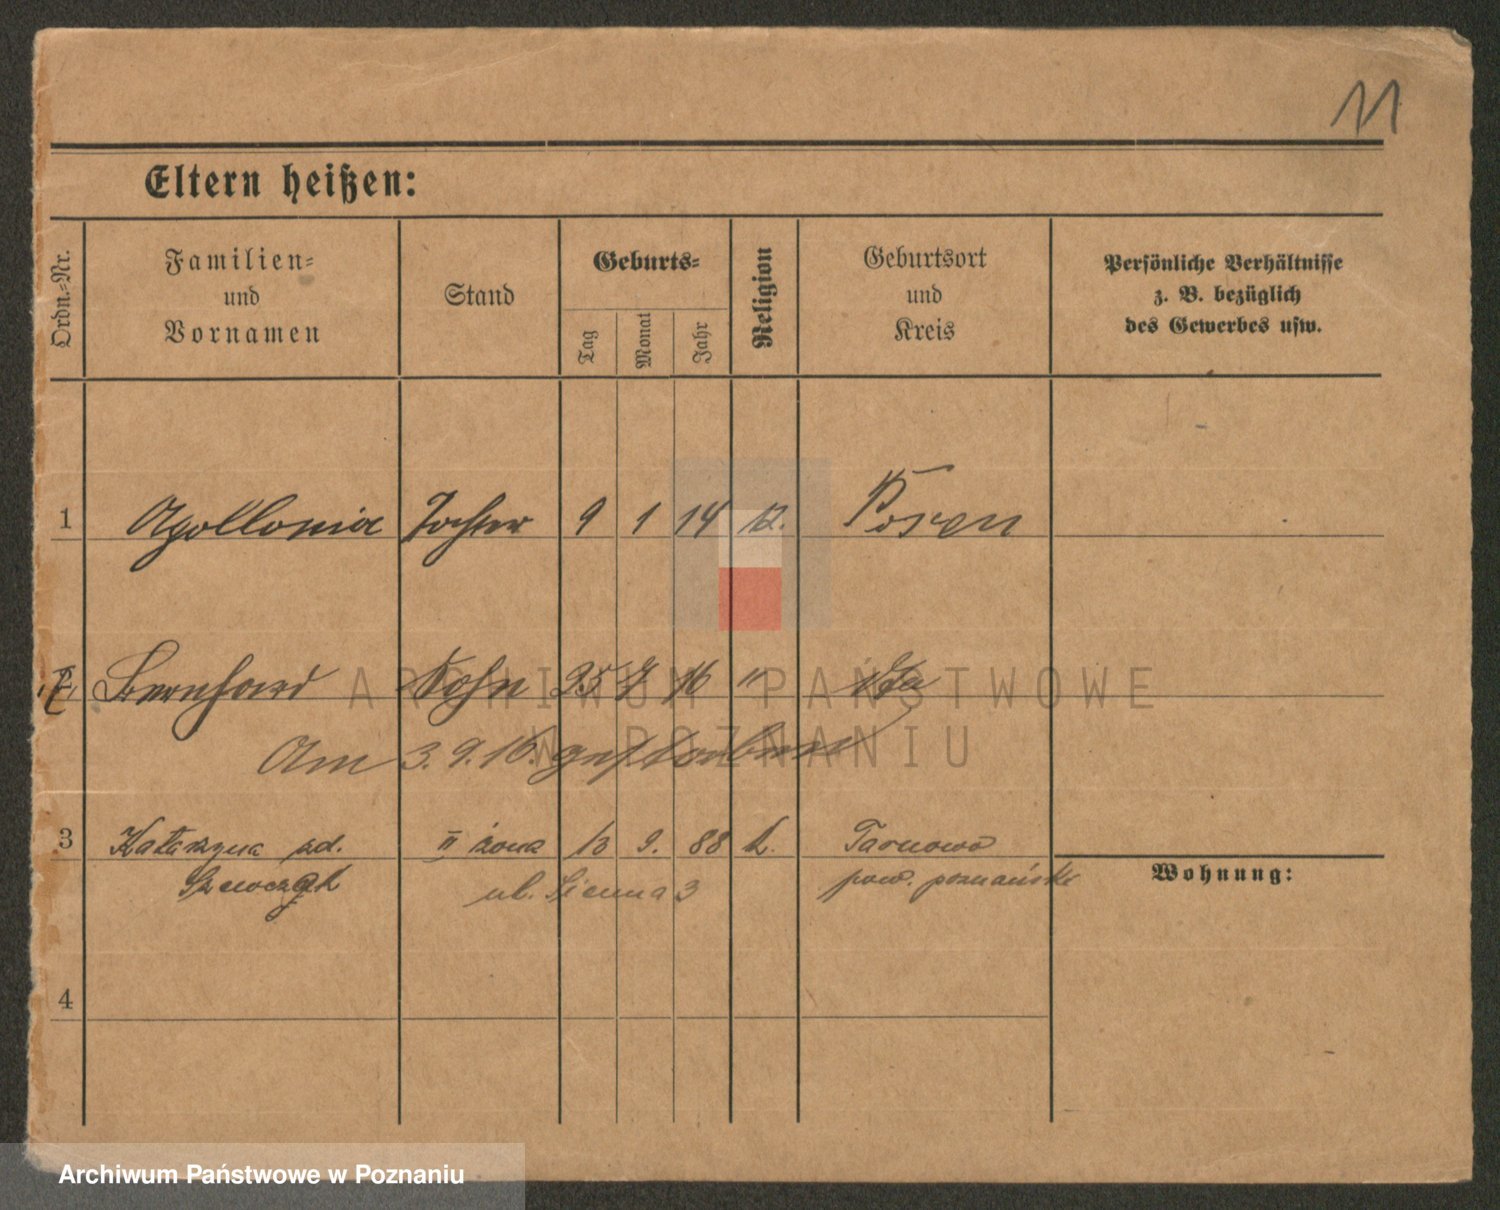 11
Eltern heißen:
Ordn.-Nr.
Familien-
und
Vornamen
Stand
Geburts-
Tag
Monat
Jahr
Religion
Geburtsort
und
Kreis
Persönliche Verhältnisse
z. B. bezüglich
des Gewerbes usw.
1 Apollonia Tochter 9 1 14 k. Posen
2 Bernhard Sohn 25 7 16 " dto
Am 3.9.16. gestorben
3 Katarzyna zd. II żona 13 9. 88 k. Tarnowo
Szewczyk ul. Sienna 3 pow. poznański
Wohnung:
4
ARCHIWUM PAŃSTWOWE
W POZNANIU
Archiwum Państwowe w Poznaniu